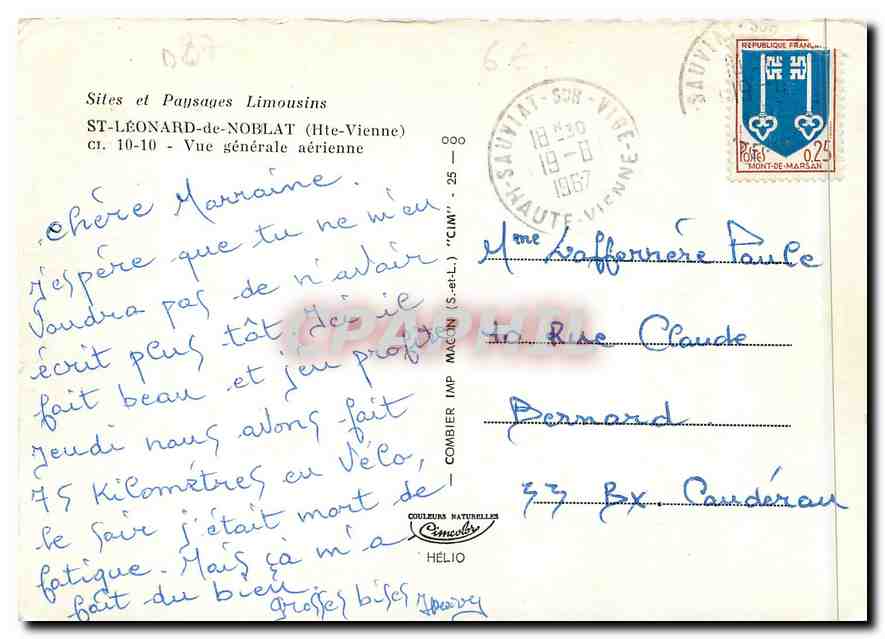 D87
6€
Sites et Paysages Limousins
ST-LÉONARD-de-NOBLAT (Hte-Vienne)
Cl. 10-10 - Vue générale aérienne
chère Marraine.
j'espère que tu ne m'en
voudra pas de n'avoir
écrit plus tôt. Ici il
fait beau et j'en profite
jeudi nous avons fait
75 Kilomètres en Vélo,
le soir j'était mort de
fatigue. Mais çà m'a
fait du bien.
grosses bises
COMBIER IMP MACON (S.-et-L.) "CIM" - 25 - 000
COULEURS NATURELLES
Cimcolor
HÉLIO
SAUVIAT-SUR-VIGE
18 H30
19-8
1967
HAUTE-VIENNE
SAUVIAT-SUR
REPUBLIQUE FRANÇAISE
POSTES
0,25
MONT-DE-MARSAN
Mme Lafferrére Paule
Rue Claude
Bernard
33 Bx. Caudéran
CPAPHIL